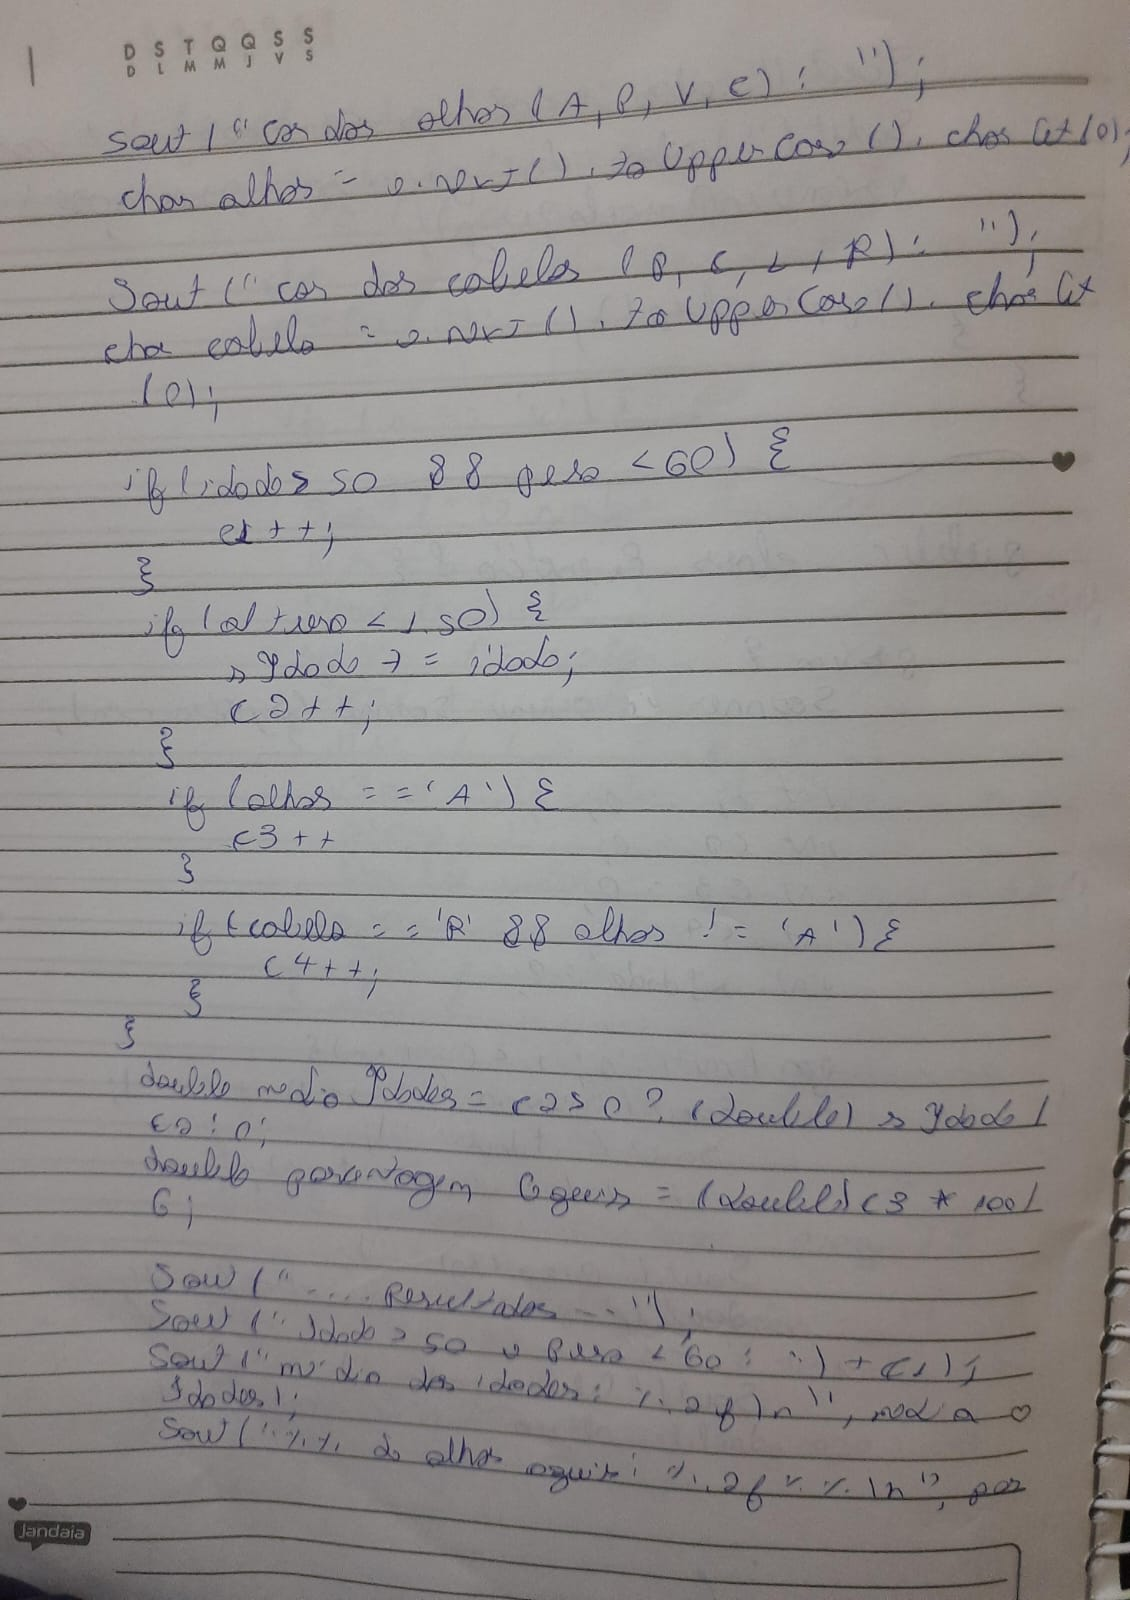 D S T Q Q S S
D L M M J V S
Sout ("Cor dos olhos (A, P, V, C) : ");
char olhos = s.next().toUpperCase().charAt(0);
Sout ("cor dos cabelos (P, C, L, R): ");
char cabelo = s.next().toUpperCase().charAt
(0);
if (idade > 50 && peso < 60) {
c1++;
}
if (altura < 1.50) {
sIdade += idade;
c2++;
}
if (olhos == 'A') {
c3++
}
if (cabelo == 'R' && olhos != 'A') {
c4++;
}
}
double media Idades = c2 > 0 ? (double) sIdade /
c2 : 0;
double porcentagem Azuis = (double) c3 * 100 /
6;
Sout (".... Resultados ---");
Sout ("Idade > 50 e Peso < 60 : ") + c1);
Sout ("média das idades: %.2f\n", media
Idades);
Sout ("%% de olhos azuis: %.2f%%\n", por
Jandaia